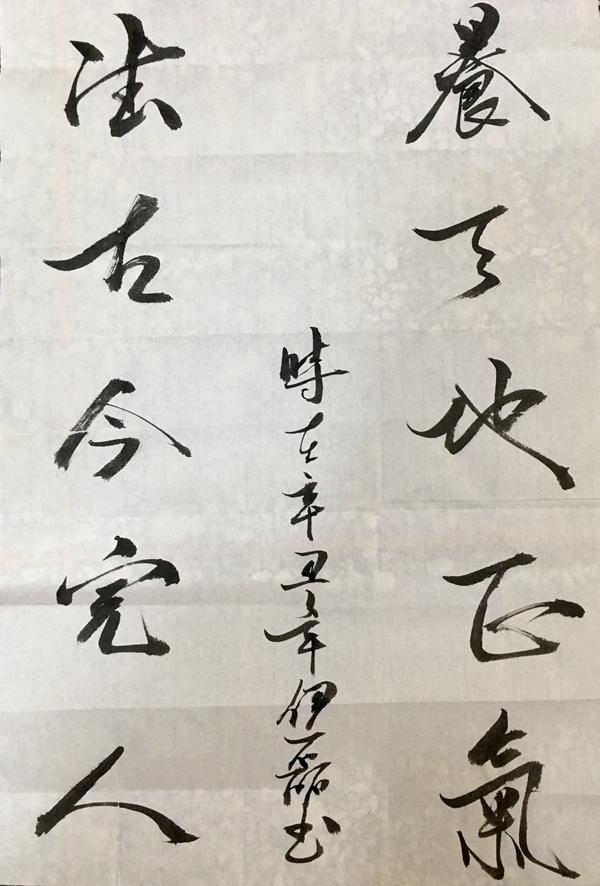 養天地正氣
法古今完人
時在辛丑年伊磊书